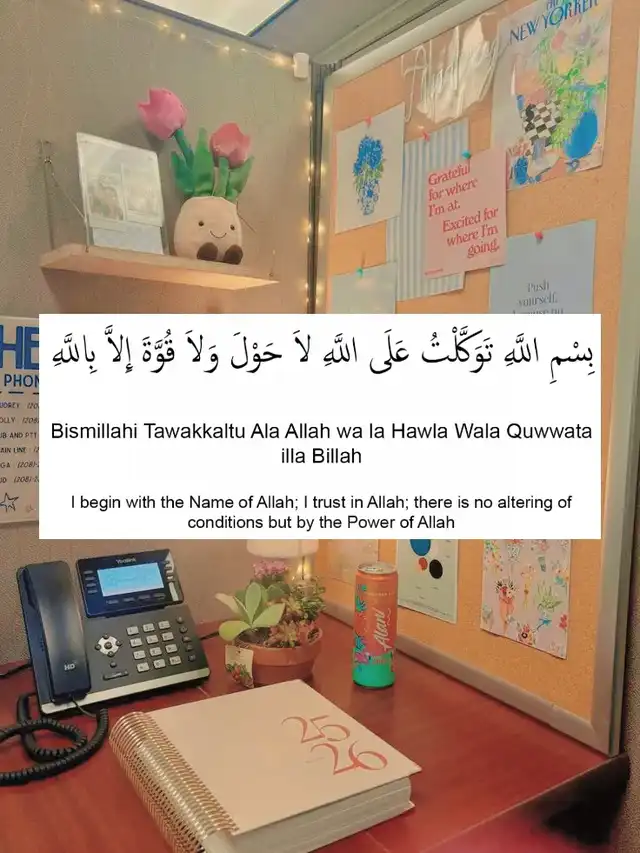 THE
NEW YORKER
Audrey
Grateful
for where
I'm at.
Excited for
where I'm
going.
Push
yourself.
بِسْمِ اللَّهِ تَوَكَّلْتُ عَلَى اللَّهِ لاَ حَوْلَ وَلاَ قُوَّةَ إِلاَّ بِاللَّهِ
Bismillahi Tawakkaltu Ala Allah wa la Hawla Wala Quwwata
illa Billah
I begin with the Name of Allah; I trust in Allah; there is no altering of
conditions but by the Power of Allah
HE
PHON
UB AND PTT
AIN LINE
Yealink
HD
Alani
25
26